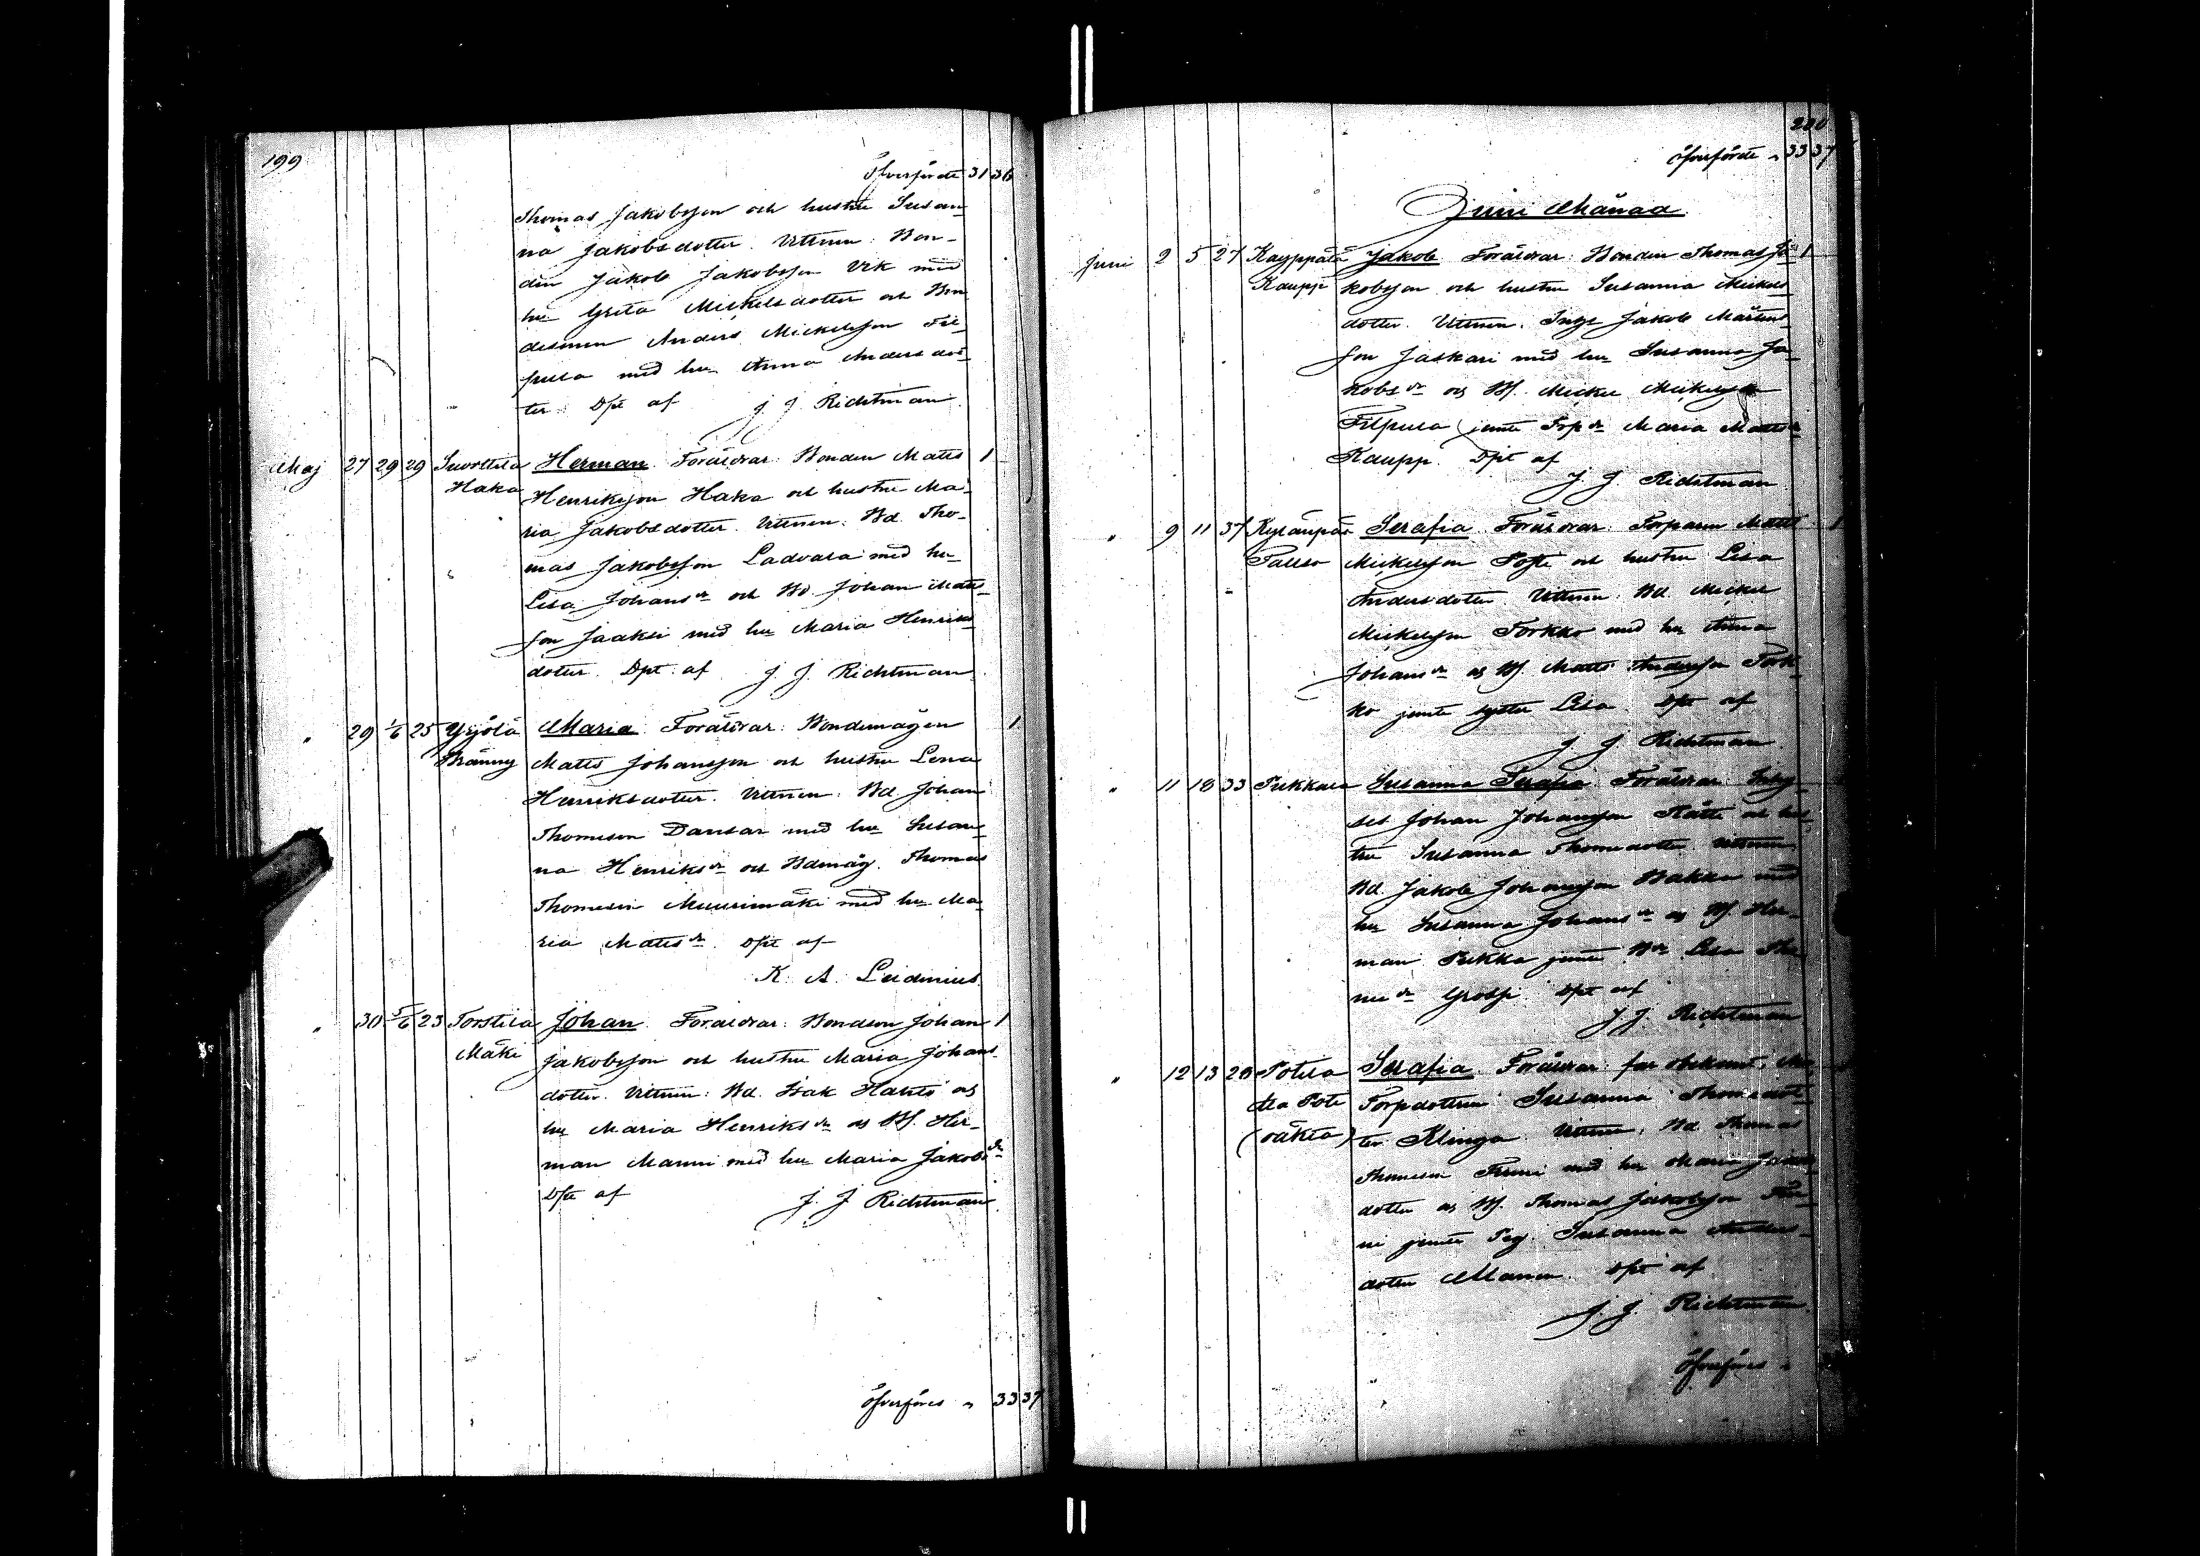 199
Öfverförde 31 36
Thomas Jakobsson och hustru Susan-
na Jakobsdotter. Vittnen: Bon-
den Jakob Jakobsson Vik med
hu Greta Mickelsdotter och Bon
desonen Anders Mickelsson Fil-
pula med hu Anna Andersdot-
ter. Dpt af J. J. Richtman
Maj 27 29 29 Suorttila Herman. Föräldrar: Bonden Matts 1
Haka Henriksson Haka och hustru Ma-
ria Jakobsdotter. Vittnen: Bd. Tho-
mas Jakobsson Ladvala med hu
Lisa Johansdr och Bd. Johan Matts-
son Jaakki med hu Maria Henriks-
dotter. Dpt af J. J. Richtman
" 29 1/6 25 Yrjölä Maria. Föräldrar: Bondemågen 1
Thänny Matts Johansson och hustru Lena
Henriksdotter. Vittnen: Bd Johan
Thomeson Dansar med hu Susan-
na Henriksdr och Bdmåg. Thomas
Thomeson Muurimäki med hu Ma-
ria Mattsdr. Dpt af
K. A. Leidenius
" 30 5/6 23 Torstila Johan. Föräldrar: Bondson Johan 1
Mäki Jakobsson och hustru Maria Johans-
dotter. Vittnen: Bd. Isak och
hu Maria Henriksdr och Bf. Her-
man Manni med hu Maria Jakobsdr
Dpt af J. J. Richtman
Öfverföres " 33 37
200
Öfverförde " 33 37
Juni Månad
Juni 2 5 27 Kauppala Jakob. Föräldrar: Bonden Thomas Ja- 1
Kaupp kobsson och hustru Susanna Mickels-
dotter. Vittnen: Inge Jakob Mårtens-
son Jaskari med hu Susanna Ja-
kobsdr och Bf. Mickel Mickelsson
Filpula jemte Trpdr Maria Mattsdr
Kaupp. Dpt af
J. J. Richtman
" 9 11 37 Kylänpää Serafia. Föräldrar: Torparen Matts 1
Mickelsson och hustru Lisa
Andersdotter. Vittnen: Bd. Mickel
Mickelsson Torkko med hu Anna
Johansdr och Bf. Matts Andersson Tork-
ko jemte syster Lisa. Dpt af
J. J. Richtman
" 11 18 33 Pukkala Susanna Serafia. Föräldrar:
Johan Johansson och hus-
tru Susanna Thomedotter. Vittnen
Bd. Jakob Johansson Bakka med
hu Susanna Johansdr och Bf. Her-
man Pukka jemte Lisa Tho-
medr Dpt af
J. J. Richtman
" 12 13 28 Potila Serafia. Föräldrar: far obekant,
(oäkta) Torpdottern Susanna Thomedot-
ter Klinga. Vittnen: Bd. Thomas
Thomeson med hu Maria
dotter och Bf. Thomas Jakobsson
jemte Pig. Susanna Anders-
dotter Dpt af
J. J. Richtman.
Öfverföres "